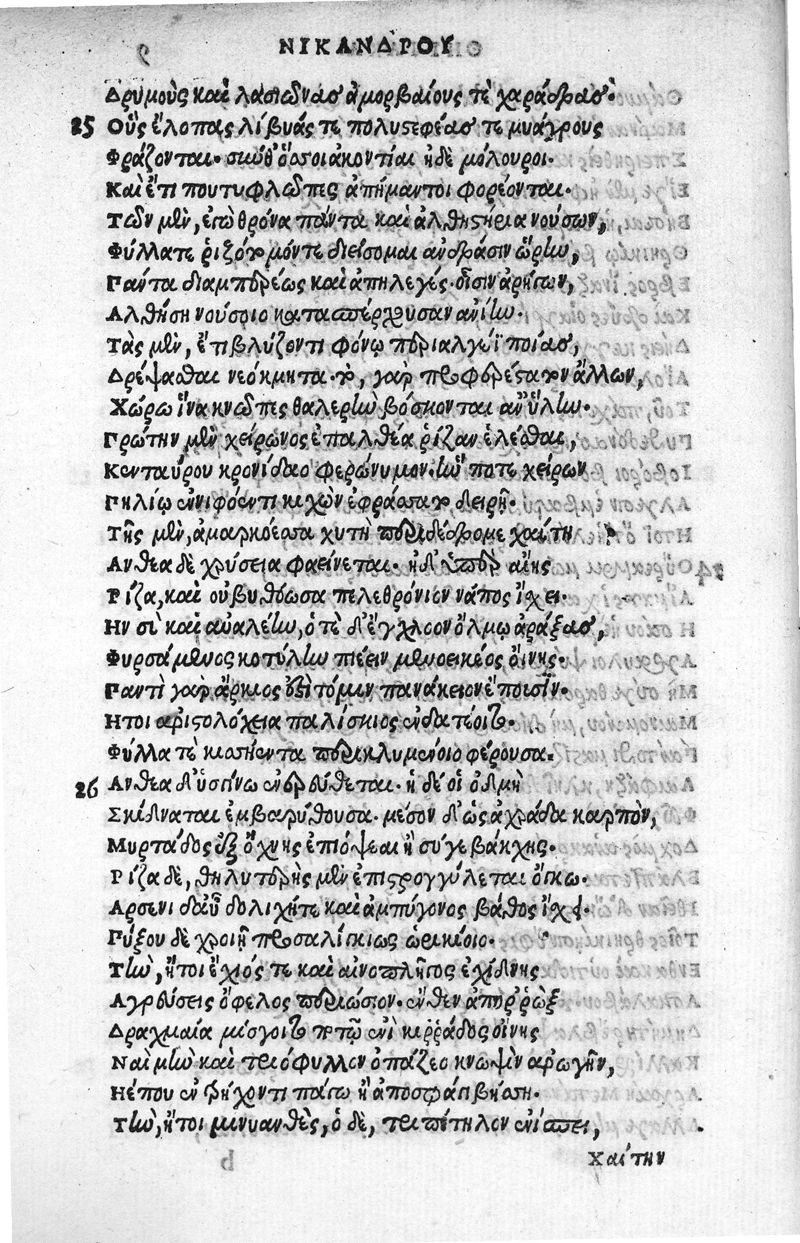 ΝΙΚΑΝΔΡΟΥ
Δρυμοὺς καὶ λασιῶνας ἀμορβαίους τὲ χαράδρας·
25 Οὓς ἔλοπας λίβυάς τε πολυστεφέας τε μυάγρους
Φράζονται· σὺν θ' ὅσσοι ἀκοντίαι ἠδὲ μόλουροι·
Καὶ ἔτι που τυφλῶπες ἀπήμαντοι φορέονται·
Τῶν μὲν, ἐγὼ θρόνα πάντα καὶ ἀλθηστήρια νούσων,
Φύλλά τε ῥιζοτόμόν τε διείσομαι ἀνδράσιν ὥρην,
Πάντα διαμπερέως καὶ ἀπηλεγές· οἷσιν ἀρήγων,
Αλθήσῃ νούσοιο κατασπέρχουσαν ἀνίην·
Τὰς μὲν, ἔτι βλύζοντι φόνῳ περιαλγέϊ ποίας,
Δρέψασθαι νεόκμητα· τὸ, γὰρ προφερέστατον ἄλλων,
Χώρῳ ἵνα κνῶπες θαλερὴν βόσκονται ἀν' ὕλην·
Πρώτην μὲν χείρωνος ἐπαλθέα ῥίζαν ἑλέσθαι,
Κενταύρου κρονίδαο φερώνυμον· ἥν ποτε χείρων
Πηλίῳ ἐνιφόεντι κιχὼν ἐφράσσατο δειρῇ·
Τῆς μὲν, ἀμαρακόεσσα χυτὴ περιδέδρομε χαίτη
Ανθεα δὲ χρύσεια φαείνεται· ἡ δ' ὑπὲρ αἴης
Ρίζα, καὶ οὐ βυθόωσα πελεθρόνιον νάπος ἴσχει·
Ην σὺ καὶ αὐαλέην, ὁτὲ δ' ἔγχλοον ὅλμῳ ἀράξας,
Φυρσάμενος κοτύλην πιέειν μενοεικέος οἴνης·
Παντὶ γὰρ ἄρκιος ἐστὶ τό μιν πανάκειον ἔπουσιν·
Ητοι ἀριστολόχεια παλίσκιος ἐνδατέοιτο·
Φύλλά τε κισσήεντα περικλυμένοιο φέρουσα·
26 Ανθεα δ' ὑσγίνῳ ἐνερεύθεται· ἡ δέ οἱ ὀδμὴ
Σκίδναται ἐμβαρύθουσα· μέσον δ' ὡς ἀχράδα καρπὸν,
Μυρτάδος ἐξ ὄχνης ἐπιόψεαι ἢ σύγε βάκχης·
Ρίζα δὲ, θηλυτέρης μὲν ἐπιστρογγύλεται ὄγκῳ·
Αρσενι δ' αὖ δολιχήτε καὶ ἀμπύγονος βάθος ἴσχει·
Πύξου δὲ χροιῇ προσαλίγκιος ὠρικίοιο·
Τὴν, ἤτοι ἔχιός τε καὶ αἰνοπλῆγος ἐχίδνης
Αγρεύσεις ὄφελος περιώσιον· ἔνθεν ἀπορρὼξ
Δραχμαία μίσγοιτο ποτῷ ἐνὶ κιρράδος οἴνης
Ναὶ μὴν καὶ τρισόφυλλον ὀπάζεο κνωψὶν ἀρωγὴν,
Ηέ που ἐν τρήχοντι πάγῳ ἢ ἀποσφάγι βήσσῃ·
Τὴν, ἤτοι μινυανθὲς, ὁ δὲ, τριπέτηλον ἐνίσπει,
Χαίτην